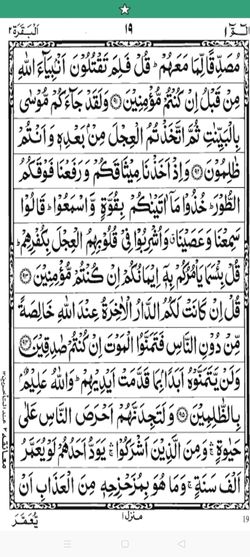 الٓمّٓ ١ ١٩ اَلْبَقَرَة ٢
مُصَدِّقًا لِّمَا مَعَهُمْ ؕ قُلْ فَلِمَ تَقْتُلُوْنَ اَنْۢبِیَآءَ اللّٰهِ
مِنْ قَبْلُ اِنْ كُنْتُمْ مُّؤْمِنِیْنَ ﴿۹۱﴾ وَلَقَدْ جَآءَكُمْ مُّوْسٰی
بِالْبَیِّنٰتِ ثُمَّ اتَّخَذْتُمُ الْعِجْلَ مِنْۢ بَعْدِهٖ وَاَنْتُمْ
ظٰلِمُوْنَ ﴿۹۲﴾ وَاِذْ اَخَذْنَا مِیْثَاقَكُمْ وَرَفَعْنَا فَوْقَكُمُ
الطُّوْرَ ؕ خُذُوْا مَاۤ اٰتَیْنٰكُمْ بِقُوَّةٍ وَّاسْمَعُوْا ؕ قَالُوْا
سَمِعْنَا وَعَصَیْنَا ۗ وَاُشْرِبُوْا فِیْ قُلُوْبِهِمُ الْعِجْلَ بِكُفْرِهِمْ ؕ
قُلْ بِئْسَمَا یَاْمُرُكُمْ بِهٖۤ اِیْمَانُكُمْ اِنْ كُنْتُمْ مُّؤْمِنِیْنَ ﴿۹۳﴾
قُلْ اِنْ كَانَتْ لَكُمُ الدَّارُ الْاٰخِرَةُ عِنْدَ اللّٰهِ خَالِصَةً
مِّنْ دُوْنِ النَّاسِ فَتَمَنَّوُا الْمَوْتَ اِنْ كُنْتُمْ صٰدِقِیْنَ ﴿۹۴﴾
وَلَنْ یَّتَمَنَّوْهُ اَبَدًۢا بِمَا قَدَّمَتْ اَیْدِیْهِمْ ؕ وَاللّٰهُ عَلِیْمٌۢ
بِالظّٰلِمِیْنَ ﴿۹۵﴾ وَلَتَجِدَنَّهُمْ اَحْرَصَ النَّاسِ عَلٰی
حَیٰوةٍ ۛۚ وَمِنَ الَّذِیْنَ اَشْرَكُوْا ۛۚ یَوَدُّ اَحَدُهُمْ لَوْ یُعَمَّرُ
اَلْفَ سَنَةٍ ۚ وَمَا هُوَ بِمُزَحْزِحِهٖ مِنَ الْعَذَابِ اَنْ
یُّعَمَّرَ منزل ١ 19